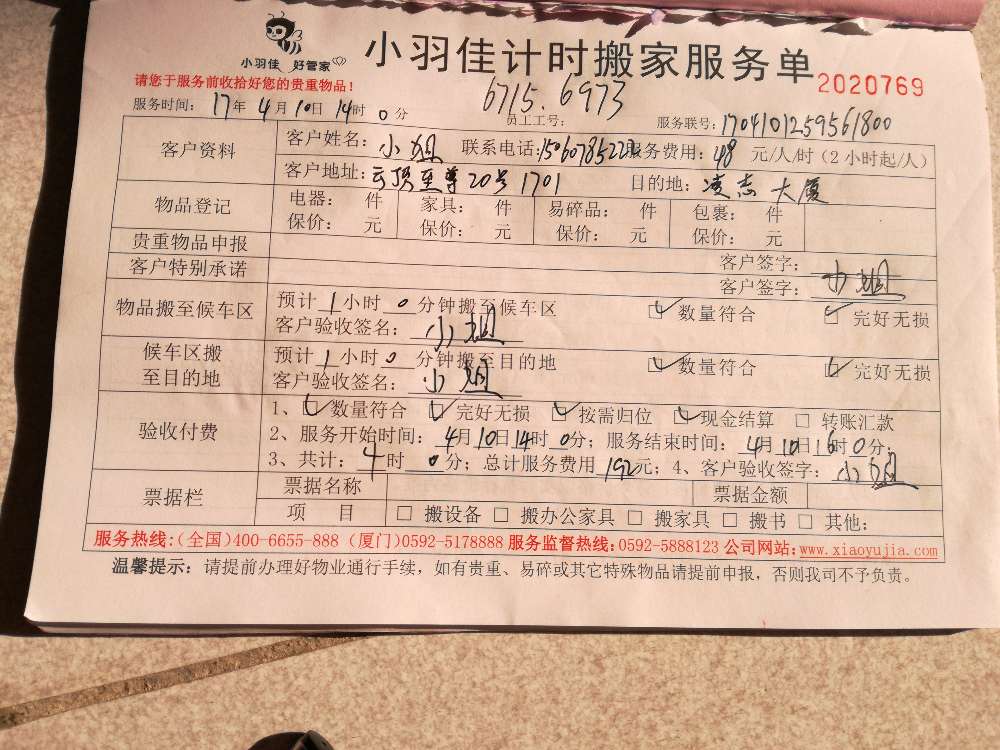 小羽佳 好管家
小羽佳计时搬家服务单 2020769
请您于服务前收拾好您的贵重物品!
6715.6973
服务时间: 17年4月10日14时0分 员工工号: 服务联号: 1704101259561800
客户资料 客户姓名: 小姐 联系电话: 服务费用: 48 元/人/时(2小时起/人)
客户地址: 云顶至尊20号1701 目的地: 凌志大厦
物品登记 电器: 件 家具: 件 易碎品: 件 包裹: 件
保价: 元 保价: 元 保价: 元 保价: 元
贵重物品申报 客户签字:
客户特别承诺 客户签字: 小姐
物品搬至候车区 预计1小时0分钟搬至候车区 ☑ 数量符合 ☑ 完好无损
客户验收签名: 小姐
候车区搬至目的地 预计1小时0分钟搬至目的地 ☑ 数量符合 ☑ 完好无损
客户验收签名: 小姐
验收付费 1、☑ 数量符合 ☑ 完好无损 ☑ 按需归位 ☑ 现金结算 □ 转账汇款
2、服务开始时间: 4月10日14时0分; 服务结束时间: 4月10日16时0分;
3、共计: 4时0分; 总计服务费用192元; 4、客户验收签字: 小姐
票据栏 票据名称 票据金额
项 目 □ 搬设备 □ 搬办公家具 □ 搬家具 □ 搬书 □ 其他:
服务热线:(全国)400-6655-888 (厦门)0592-5178888 服务监督热线:0592-5888123 公司网站:www.xiaoyujia.com
温馨提示: 请提前办理好物业通行手续,如有贵重、易碎或其它特殊物品请提前申报,否则我司不予负责。